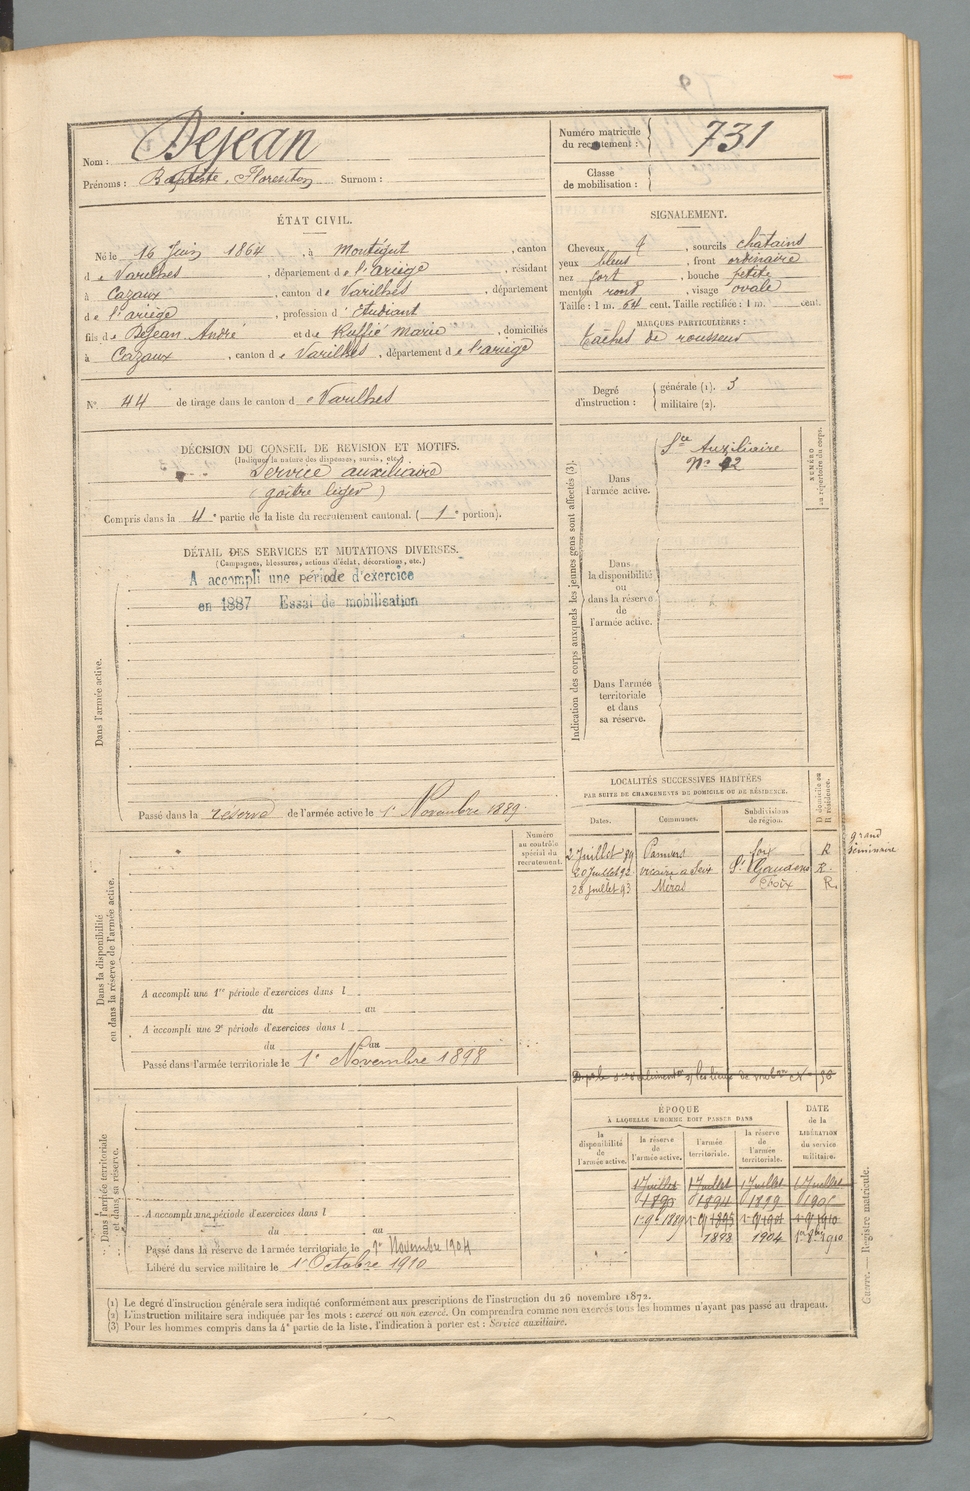 Nom : Dejean
Prénoms : Baptiste, Florentin Surnom :
Numéro matricule du recrutement : 731
Classe de mobilisation :
ÉTAT CIVIL.
Né le 16 Juin 1864, à Montégut, canton
de Varilhes, département de l'ariège, résidant
à Cazaux, canton de Varilhes, département
de l'ariège, profession d'étudiant
fils de Dejean André et de Ruffié Marie, domiciliés
à Cazaux, canton de Varilhes, département de l'ariège
SIGNALEMENT.
Cheveux, sourcils chatains
yeux bleus, front ordinaire
nez fort, bouche petite
menton rond, visage ovale
Taille : 1 m. 64 cent. Taille rectifiée : 1 m. cent.
MARQUES PARTICULIÈRES :
Tâches de rousseur
N° 44 de tirage dans le canton de Varilhes
Degré d'instruction : générale (1). 3
militaire (2).
DÉCISION DU CONSEIL DE REVISION ET MOTIFS.
(Indiquer la nature des dispenses, sursis, etc.)
Service auxiliaire
(goître léger)
Compris dans la 4e partie de la liste du recrutement cantonal. (1e portion).
DÉTAIL DES SERVICES ET MUTATIONS DIVERSES.
(Campagnes, blessures, actions d'éclat, décorations, etc.)
A accompli une période d'exercice
en 1887 Essai de mobilisation
Dans l'armée active.
Passé dans la réserve de l'armée active le 1er Novembre 1889.
Indication des corps auxquels les jeunes gens sont affectés (3).
Dans l'armée active.
Sce Auxiliaire
N° 42
NUMÉRO au répertoire du corps.
Dans la disponibilité ou dans la réserve de l'armée active.
Dans l'armée territoriale et dans sa réserve.
LOCALITÉS SUCCESSIVES HABITÉES
PAR SUITE DE CHANGEMENTS DE DOMICILE OU DE RÉSIDENCE.
Dates. Communes. Subdivisions de région. D domicile ou R résidence.
2 Juillet 89 Pamiers foix R grand séminaire
20 Juillet 92 vicaire à St Gaudens R.
28 juillet 93 Méras Foix R.
Numéro au contrôle spécial du recrutement.
Dans la disponibilité ou dans la réserve de l'armée active.
A accompli une 1re période d'exercices dans l
du au
A accompli une 2e période d'exercices dans l
du au
Passé dans l'armée territoriale le 1er Novembre 1898
ÉPOQUE
À LAQUELLE L'HOMME DOIT PASSER DANS
la disponibilité de l'armée active. la réserve de l'armée active. l'armée territoriale. la réserve de l'armée territoriale.
DATE de la LIBÉRATION du service militaire.
1 Juillet 1 Juillet 1 Juillet 1 Juillet
1894 1899
1889 1895 1904 1910
1898 1904 1er 8bre 1910
Dans l'armée territoriale et dans sa réserve.
A accompli une période d'exercices dans l
du au
Passé dans la réserve de l'armée territoriale le 1er Novembre 1904
Libéré du service militaire le 1er Octobre 1910
Guerre. — Registre matricule.
(1) Le degré d'instruction générale sera indiqué conformément aux prescriptions de l'instruction du 26 novembre 1872.
(2) L'instruction militaire sera indiquée par les mots : exercé ou non exercé. On comprendra comme non exercés tous les hommes n'ayant pas passé au drapeau.
(3) Pour les hommes compris dans la 4e partie de la liste, l'indication à porter est : Service auxiliaire.